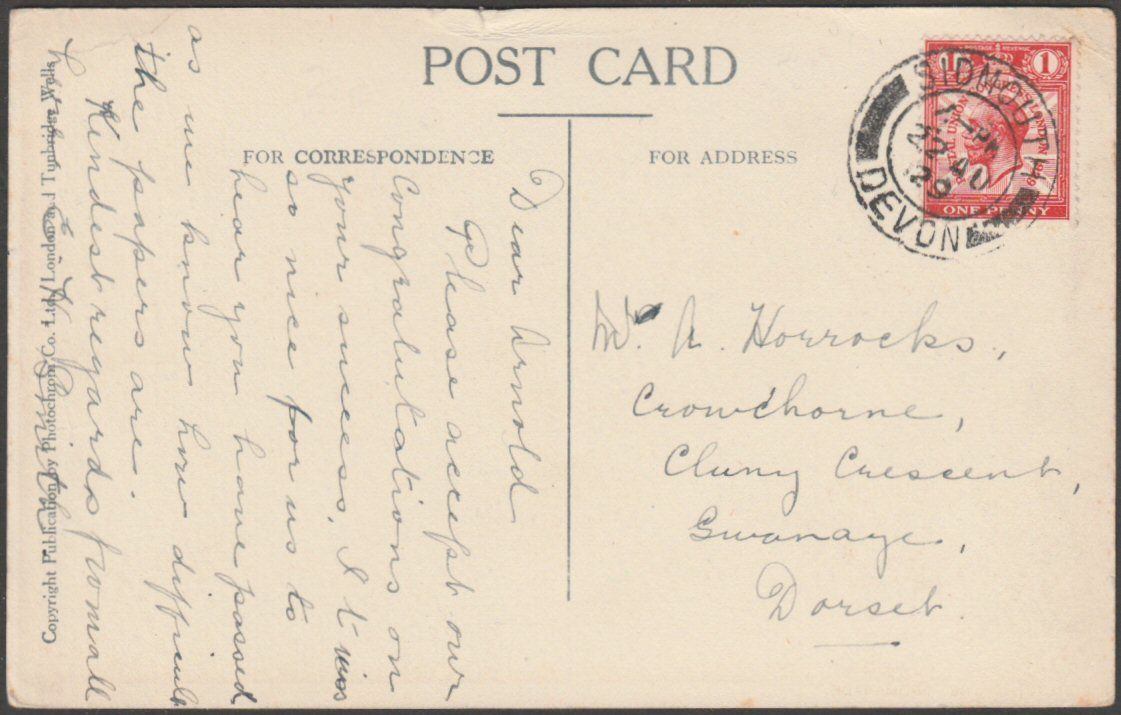 POST CARD
FOR CORRESPONDENCE
FOR ADDRESS
Dear Arnold
Please accept our
Congratulations on
your success, It was
so nice for us to
hear you have passed
as we know how difficult
the papers are.
Kindest regards from all
Copyright Publication by Photochrom Co. Ltd. London and Tunbridge Wells
POSTAGE REVENUE
1 1
POSTAL UNION CONGRESS LONDON 1929
ONE PENNY
SIDMOUTH
PM
22 AU
29
DEVON
A. Horrocks,
Crowthorne,
Cluny Crescent,
Swanage,
Dorset.